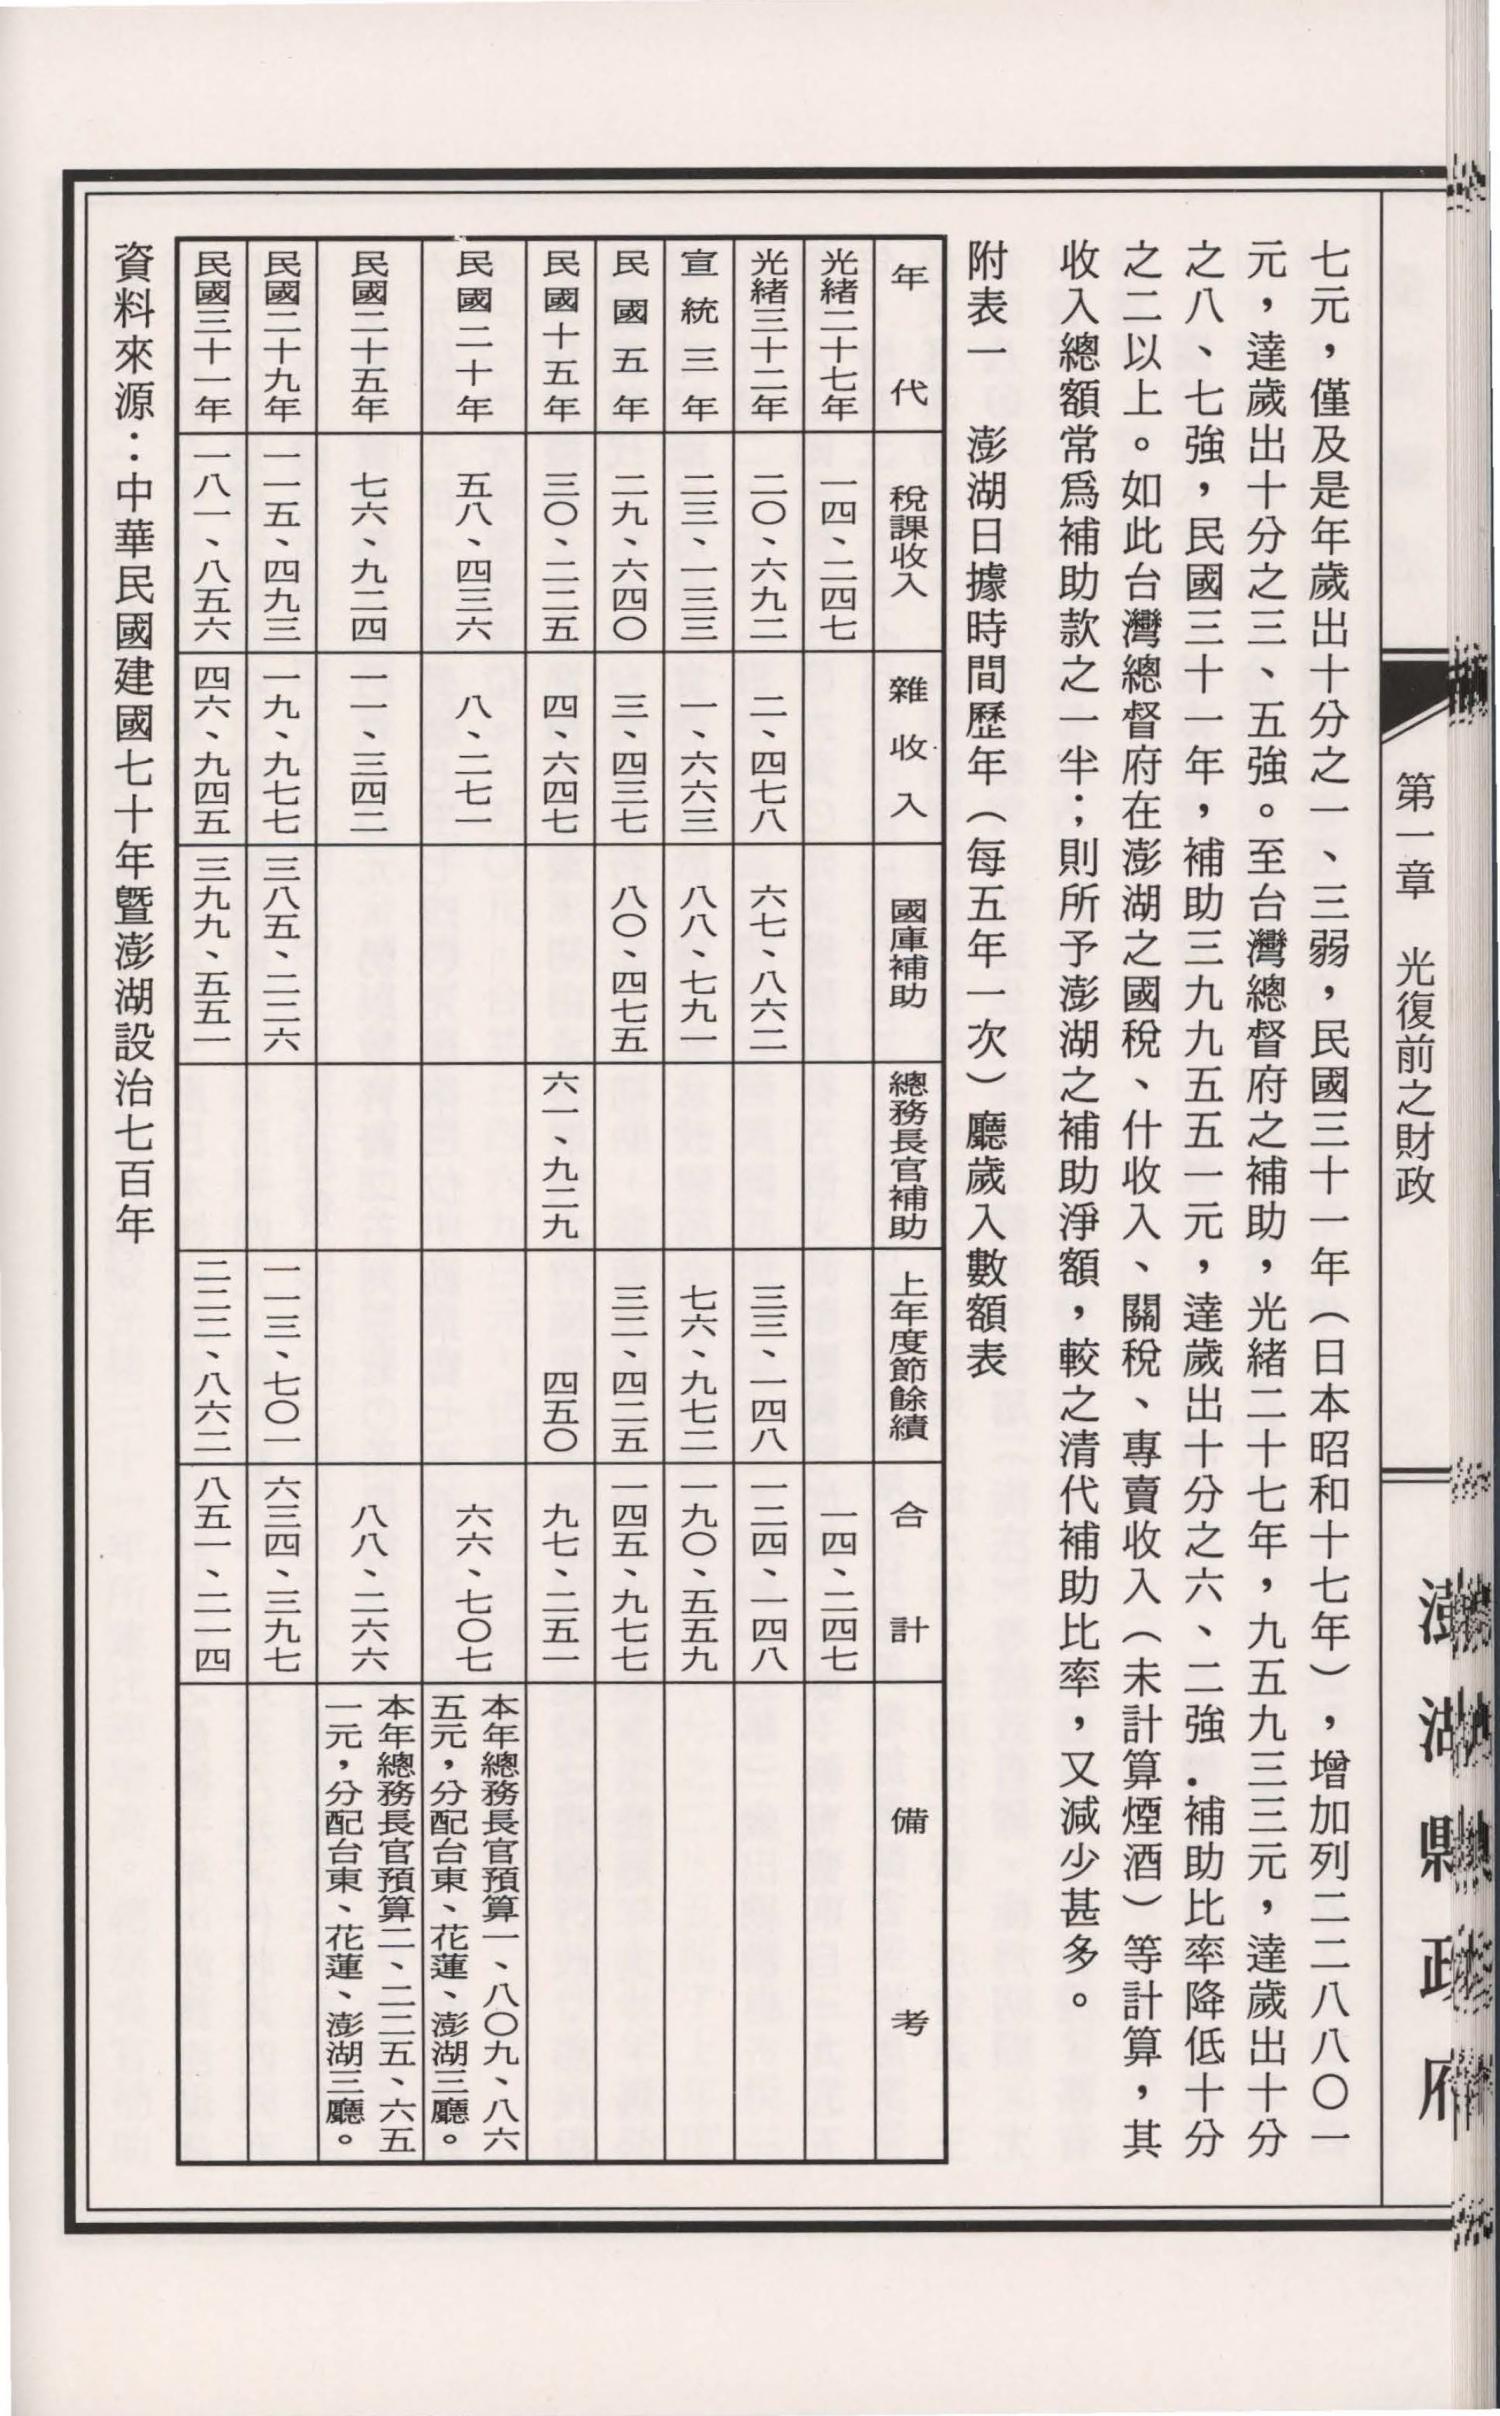 第一章　光復前之財政
澎湖縣政府
七元，僅及是年歲出十分之一、三弱，民國三十一年（日本昭和十七年），增加列二二八八〇一
元，達歲出十分之三、五強。至台灣總督府之補助，光緒二十七年，九五九三三元，達歲出十分
之八、七強，民國三十一年，補助三九九五五一元，達歲出十分之六、二強．補助比率降低十分
之二以上。如此台灣總督府在澎湖之國稅、什收入、關稅、專賣收入（未計算煙酒）等計算，其
收入總額常爲補助款之一半；則所予澎湖之補助淨額，較之清代補助比率，又減少甚多。
附表一　澎湖日據時間歷年（每五年一次）廳歲入數額表
年代　稅課收入　雜收入　國庫補助　總務長官補助　上年度節餘績　合計　備考
光緒二十七年　一四、二四七　一四、二四七
光緒三十二年　二〇、六九二　二、四七八　六七、八六二　三三、一四八　一二四、一四八
宣統三年　二三、一三三　一、六六三　八八、七九一　七六、九七二　一九〇、五五九
民國五年　二九、六四〇　三、四三七　八〇、四七五　三二、四二五　一四五、九七七
民國十五年　三〇、二二五　四、六四七　六一、九二九　四五〇　九七、二五一
民國二十年　五八、四三六　八、二七一　六六、七〇七　本年總務長官預算一、八〇九、八六
五元，分配台東、花蓮、澎湖三廳。
民國二十五年　七六、九二四　一一、三四二　八八、二六六　本年總務長官預算二、二二五、六五
一元，分配台東、花蓮、澎湖三廳。
民國二十九年　一一五、四九三　一九、九七七　三八五、二二六　一一三、七〇一　六三四、三九七
民國三十一年　一八一、八五六　四六、九四五　三九九、五五一　二二二、八六二　八五一、二一四
資料來源：中華民國建國七十年暨澎湖設治七百年